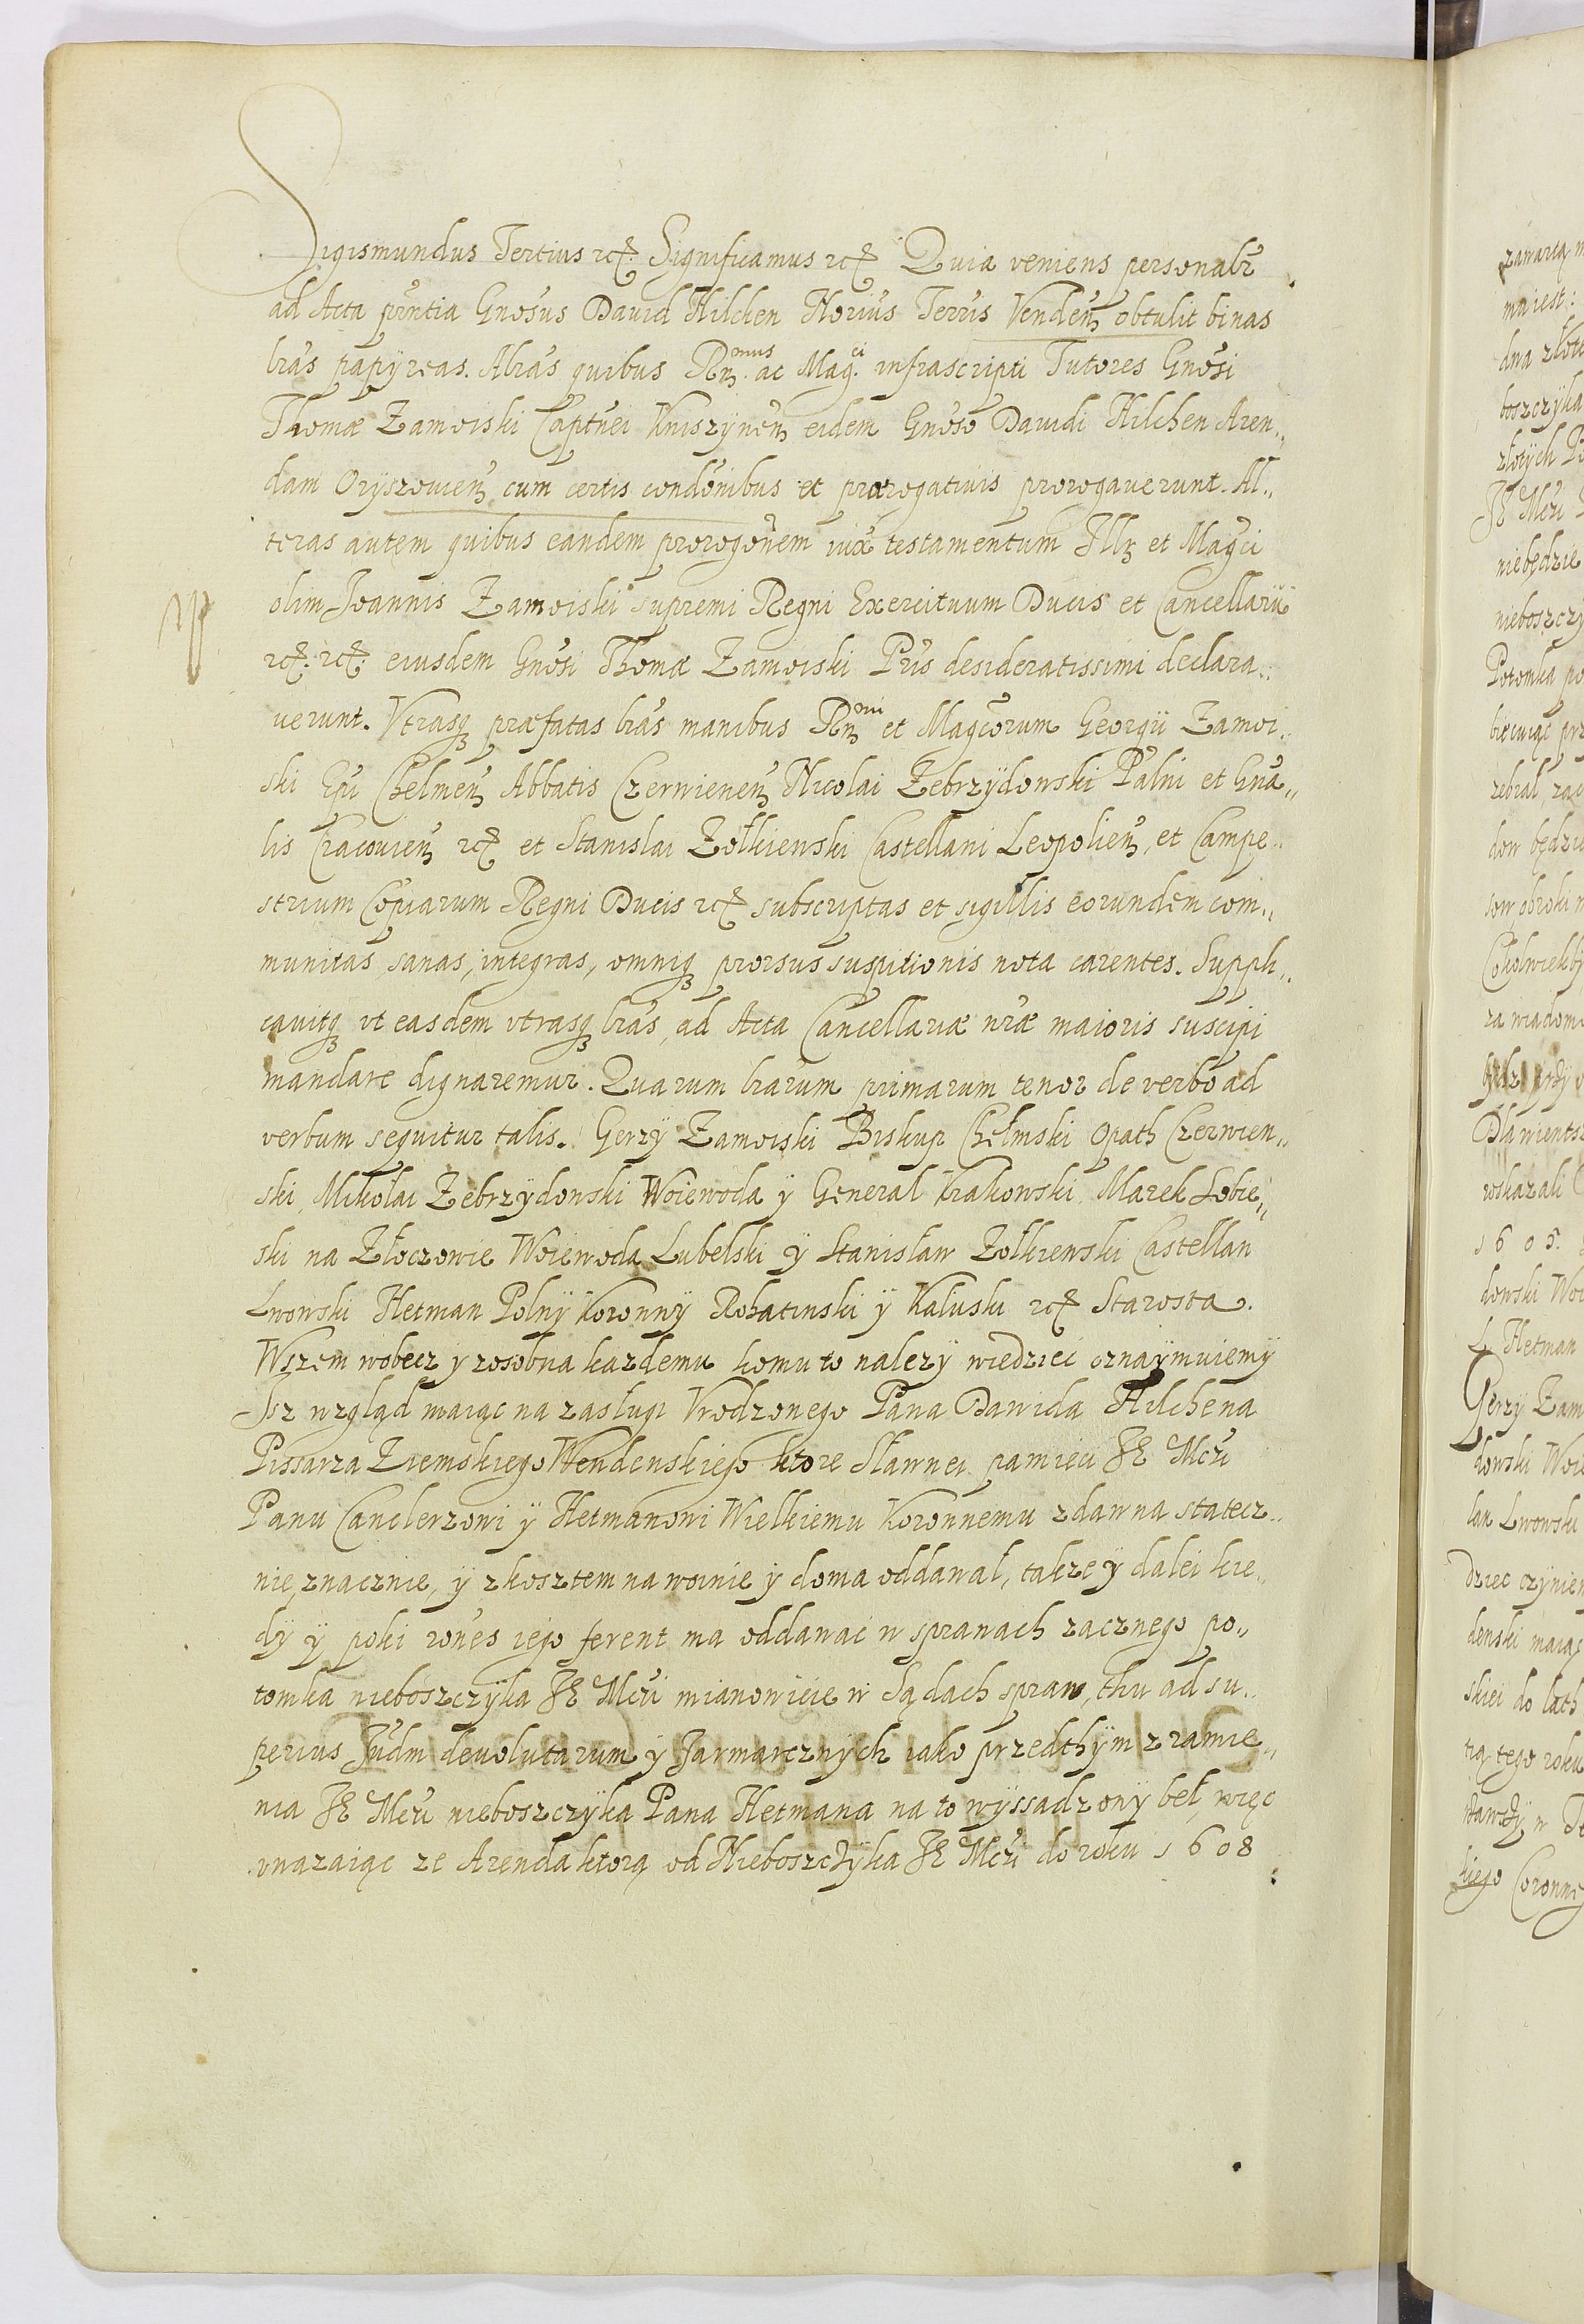 Sigismundus Tertius etc. Significamus etc. Quia veniens personalr
ad Acta pñtia Gnosus Dauid Hilchen Norius Terris Venden obtulit binas
lras papyreas. Alras quibus Rmus ac Magci infrascripti Tutores Gnosi
Thomæ Zamoiski Captnei Kniszynen eidem Gnoso Dauidi Hilchen Aren„
dam Oryszouien cum certis condonibus et prærogatiuis prorogauerunt. Al„
teras autem quibus eandem prorogonem iux testamentum Illm et Magci
olim Joannis Zamoiski supremi Regni Exercituum Ducis et Cancellarii
etc. etc. eiusdem Gnosi Thomæ Zamoiski Pris desideratissimi declara„
uerunt. Vtrasq præfatas lras manibus Rmi et Magcorum Georgii Zamoi„
ski Epi Chelmen Abbatis Czerwienen Nicolai Zebrzydowski Palni et Gna„
lis Cracouien etc et Stanislai Zołkiewski Castellani Leopolien, et Campe„
strium Copiarum Regni Ducis etc subscriptas et sigillis eorundem com„
munitas sanas, integras, omniq prorsus suspitionis nota carentes. Suppli„
cauitq vt easdem vtrasq lras, ad Acta Cancellariæ nræ maioris suscipi
mandare dignaremur. Quarum lrarum primarum tenor de verbo ad
verbum sequitur talis. Gerzy Zamoiski Biskup Chełmski Opath Czerwien„
ski, Mikołai Zebrzydowski Woiewoda ÿ General Krakowski, Marek Sobie„
ski na Złoczowie Woiewoda Lubelski ÿ Stanisław Zołkiewski Castellan
Lwowski Hetman Polnÿ Koronnÿ Rohatinski ÿ Kałuski etc Starosta.
Wszem wobecz y zosobna kazdemu komu to nalezÿ wiedziec oznaÿmuiemÿ
Isz wzgląd maiąc na zasługi Vrodzonego Pana Dawida Hilchena
Pissarza Ziemskiego Wendenskiego ktore Sławnei pamieci JE Mci
Panu Canclerzowi ÿ Hetmanowi Wielkiemu Koronnemu zdawna statecz„
nie, znacznie, ÿ zkosztem na woinie ÿ doma oddawał, takze ÿ dalei kie„
dÿ ÿ poki rones iego ferent ma oddawac w sprawach zacznego po„
tomka nieboszczÿka JE Mci mianowicie w Sądach spraw, thu ad su„
perius Judm deuolutarum ÿ Jarmarcznÿch iako przedthÿm z ramie„
nia JE Mci nieboszczÿka Pana Hetmana na to wÿssadzonÿ beł, więc
vwazaiąc ze Arenda ktorą od Nieboszczÿka JE Mci do roku 1608